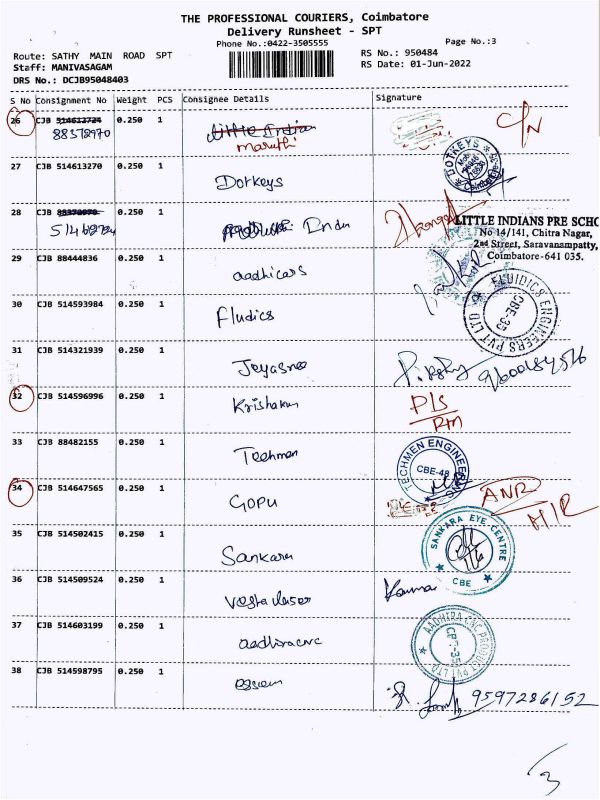 THE PROFESSIONAL COURIERS, Coimbatore
Delivery Runsheet - SPT
Phone No.:0422-3505555
Page No.:3
Route: SATHY MAIN ROAD SPT
RS No.: 950484
Staff: MANIVASAGAM
RS Date: 01-Jun-2022
DRS No.: DCJB95048403
S No Consignment No Weight PCS Consignee Details Signature
26 CJB 514612724 0.250 1 Little Indian
88378970 maruthi
27 CJB 514613270 0.250 1
Dotkeys
DOTKEYS
28 CJB 88378970 0.250 1
LITTLE INDIANS PRE SCHO
No 14/141, Chitra Nagar,
2nd Street, Saravanampatty,
Coimbatore-641 035.
29 CJB 88444836 0.250 1
aadhicars
30 CJB 514593984 0.250 1
Fludics
FLUIDICS ENGINEERS PVT LTD
CBE-35
31 CJB 514321939 0.250 1
Jeyasree
32 CJB 514596996 0.250 1
Krishakum
D/S
RTN
33 CJB 88482155 0.250 1
Techmen
TECHMEN ENGINEERING
CBE-48
34 CJB 514647565 0.250 1
GOPU
ANR
H/R
35 CJB 514502415 0.250 1
Sankara
SANKARA EYE CENTRE
CBE
36 CJB 514509524 0.250 1
37 CJB 514603199 0.250 1
aadhiracnc
AADHIRA CNC PRODUCT PVT LTD
CBE-35
38 CJB 514598795 0.250 1
essem
9597286152
3